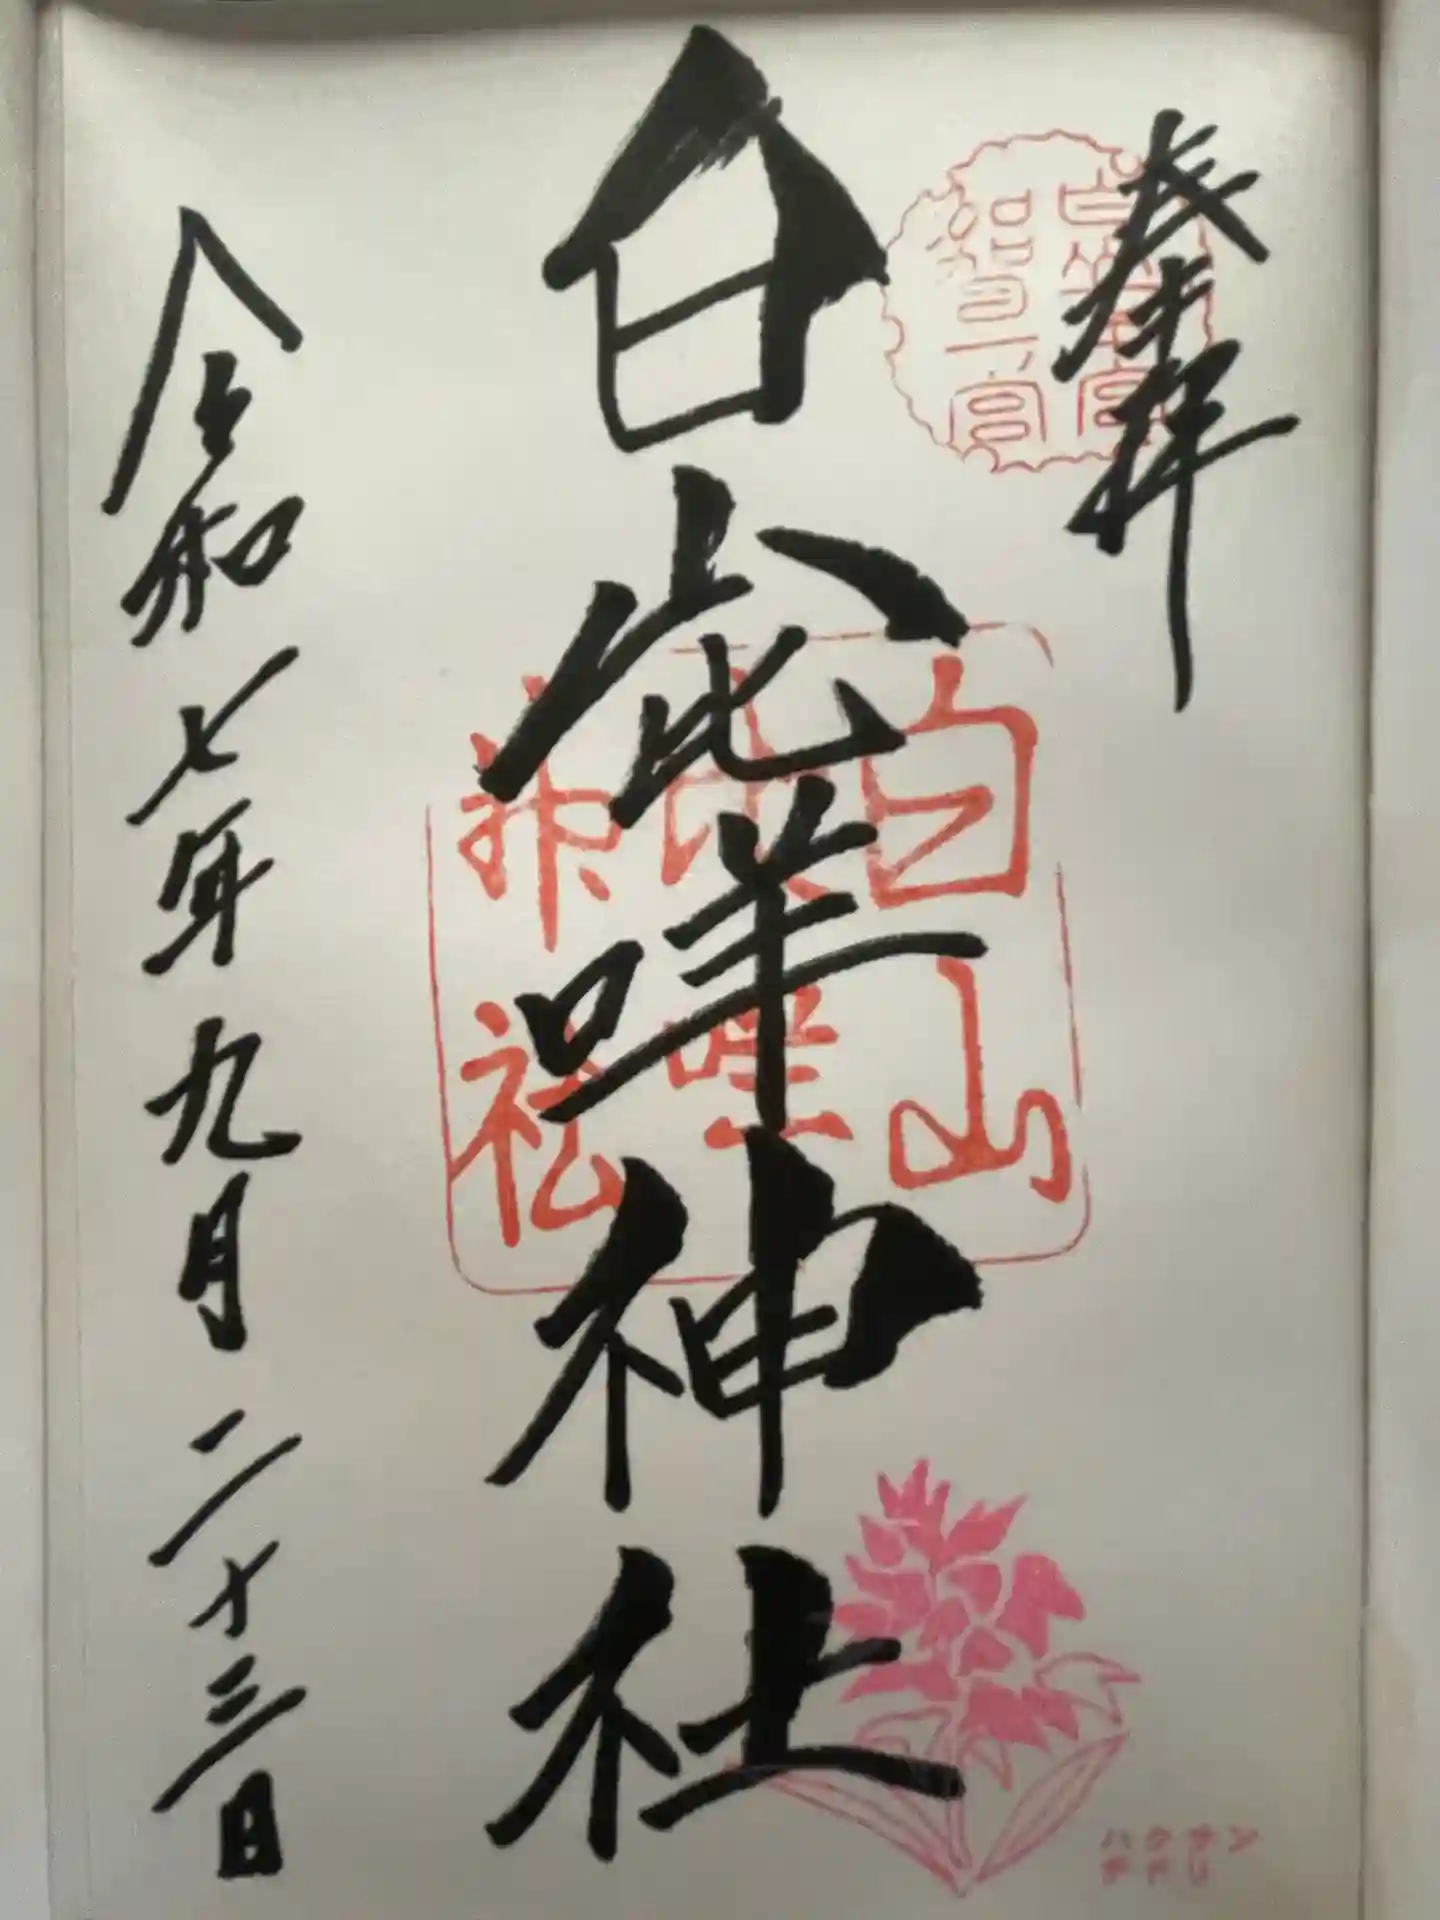 奉拝
白山比咩神社
白山
比咩
神社
令和七年九月二十三日
ハクサン
チドリ